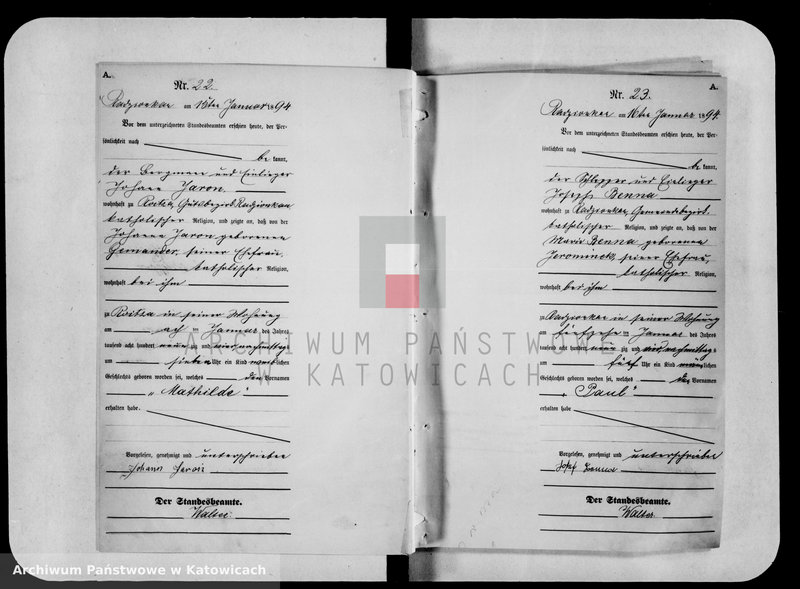 A.
Nr. 22.
Radzionkau am 16ten Januar 1894
Vor dem unterzeichneten Standesbeamten erschien heute, der Per-
sönlichkeit nach
be kannt,
der Bergmann und Einlieger
Johann Jaron
wohnhaft zu Roitza, Gutsbezirk Radzionkau
katholischer Religion, und zeigte an, daß von der
Johanna Jaron geborenen
seiner Ehefrau,
katholischer Religion,
wohnhaft bei ihm
zu Roitza in seiner Wohnung
am ten Januar des Jahres
tausend acht hundert neunzig und vier, nachmittags
um sieben Uhr ein Kind weiblichen
Geschlechts geboren worden sei, welches den Vornamen
„Mathilde“
erhalten habe.
Vorgelesen, genehmigt und unterschrieben
Johann Jaron
Der Standesbeamte.
Walter.
A.
Nr. 23.
Radzionkau am 16ten Januar 1894.
Vor dem unterzeichneten Standesbeamten erschien heute, der Per-
sönlichkeit nach
be kannt,
der Schlepper und Einlieger
Joseph Benna
wohnhaft zu Radzionkau, Gemeindebezirk
katholischer Religion, und zeigte an, daß von der
Marie Benna geborenen
Jerominek, seiner Ehefrau,
katholischer Religion,
wohnhaft bei ihm
zu Radzionkau in seiner Wohnung
am fünfzehnten Januar des Jahres
tausend acht hundert neunzig und vier, nachmittags
um fünf Uhr ein Kind männlichen
Geschlechts geboren worden sei, welches den Vornamen
„Paul“
erhalten habe
Vorgelesen, genehmigt und unterschrieben
Josef Benna
Der Standesbeamte.
Walter.
ARCHIWUM PAŃSTWOWE
W KATOWICACH
Archiwum Państwowe w Katowicach